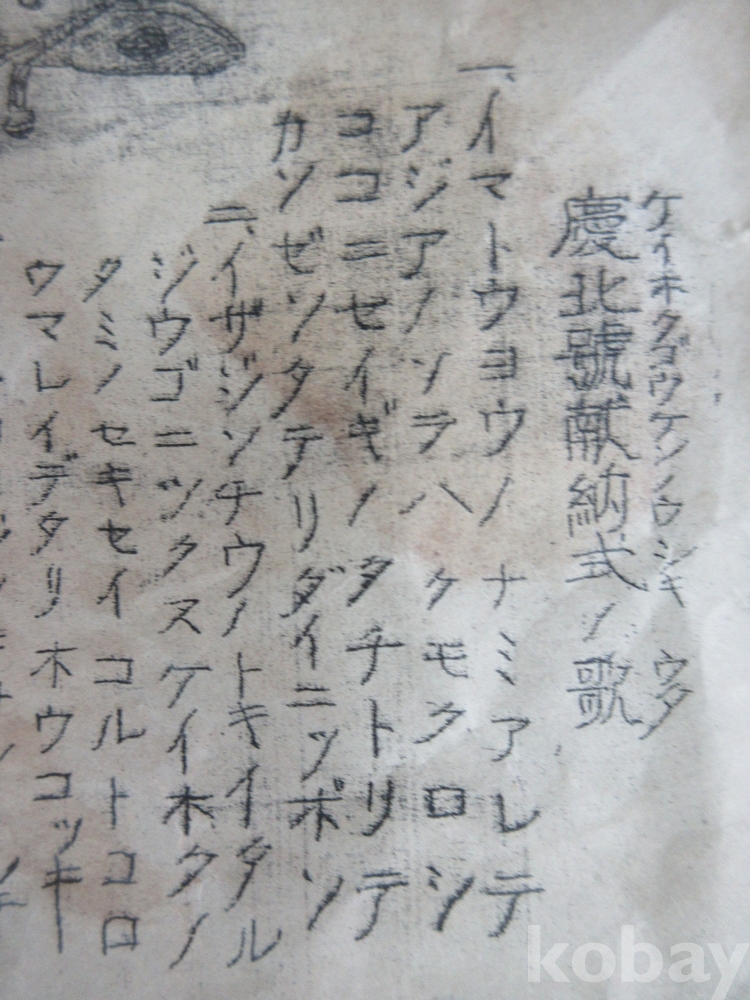 ケイホクゴウケンノウシキ ウタ
慶北號献納式ノ歌
一、イマトウヨウノ ナミアレテ
アジアノソラハ クモクロシ
ココニセイギノ タチトリテ
カンゼンタテリ ダイニッポン
二、イザジンチウノ トキイタル
ジウゴニツクス ケイホクノ
タミノセキセイ コルトコロ
ウマレイデタリ ホウコッキ
kobay